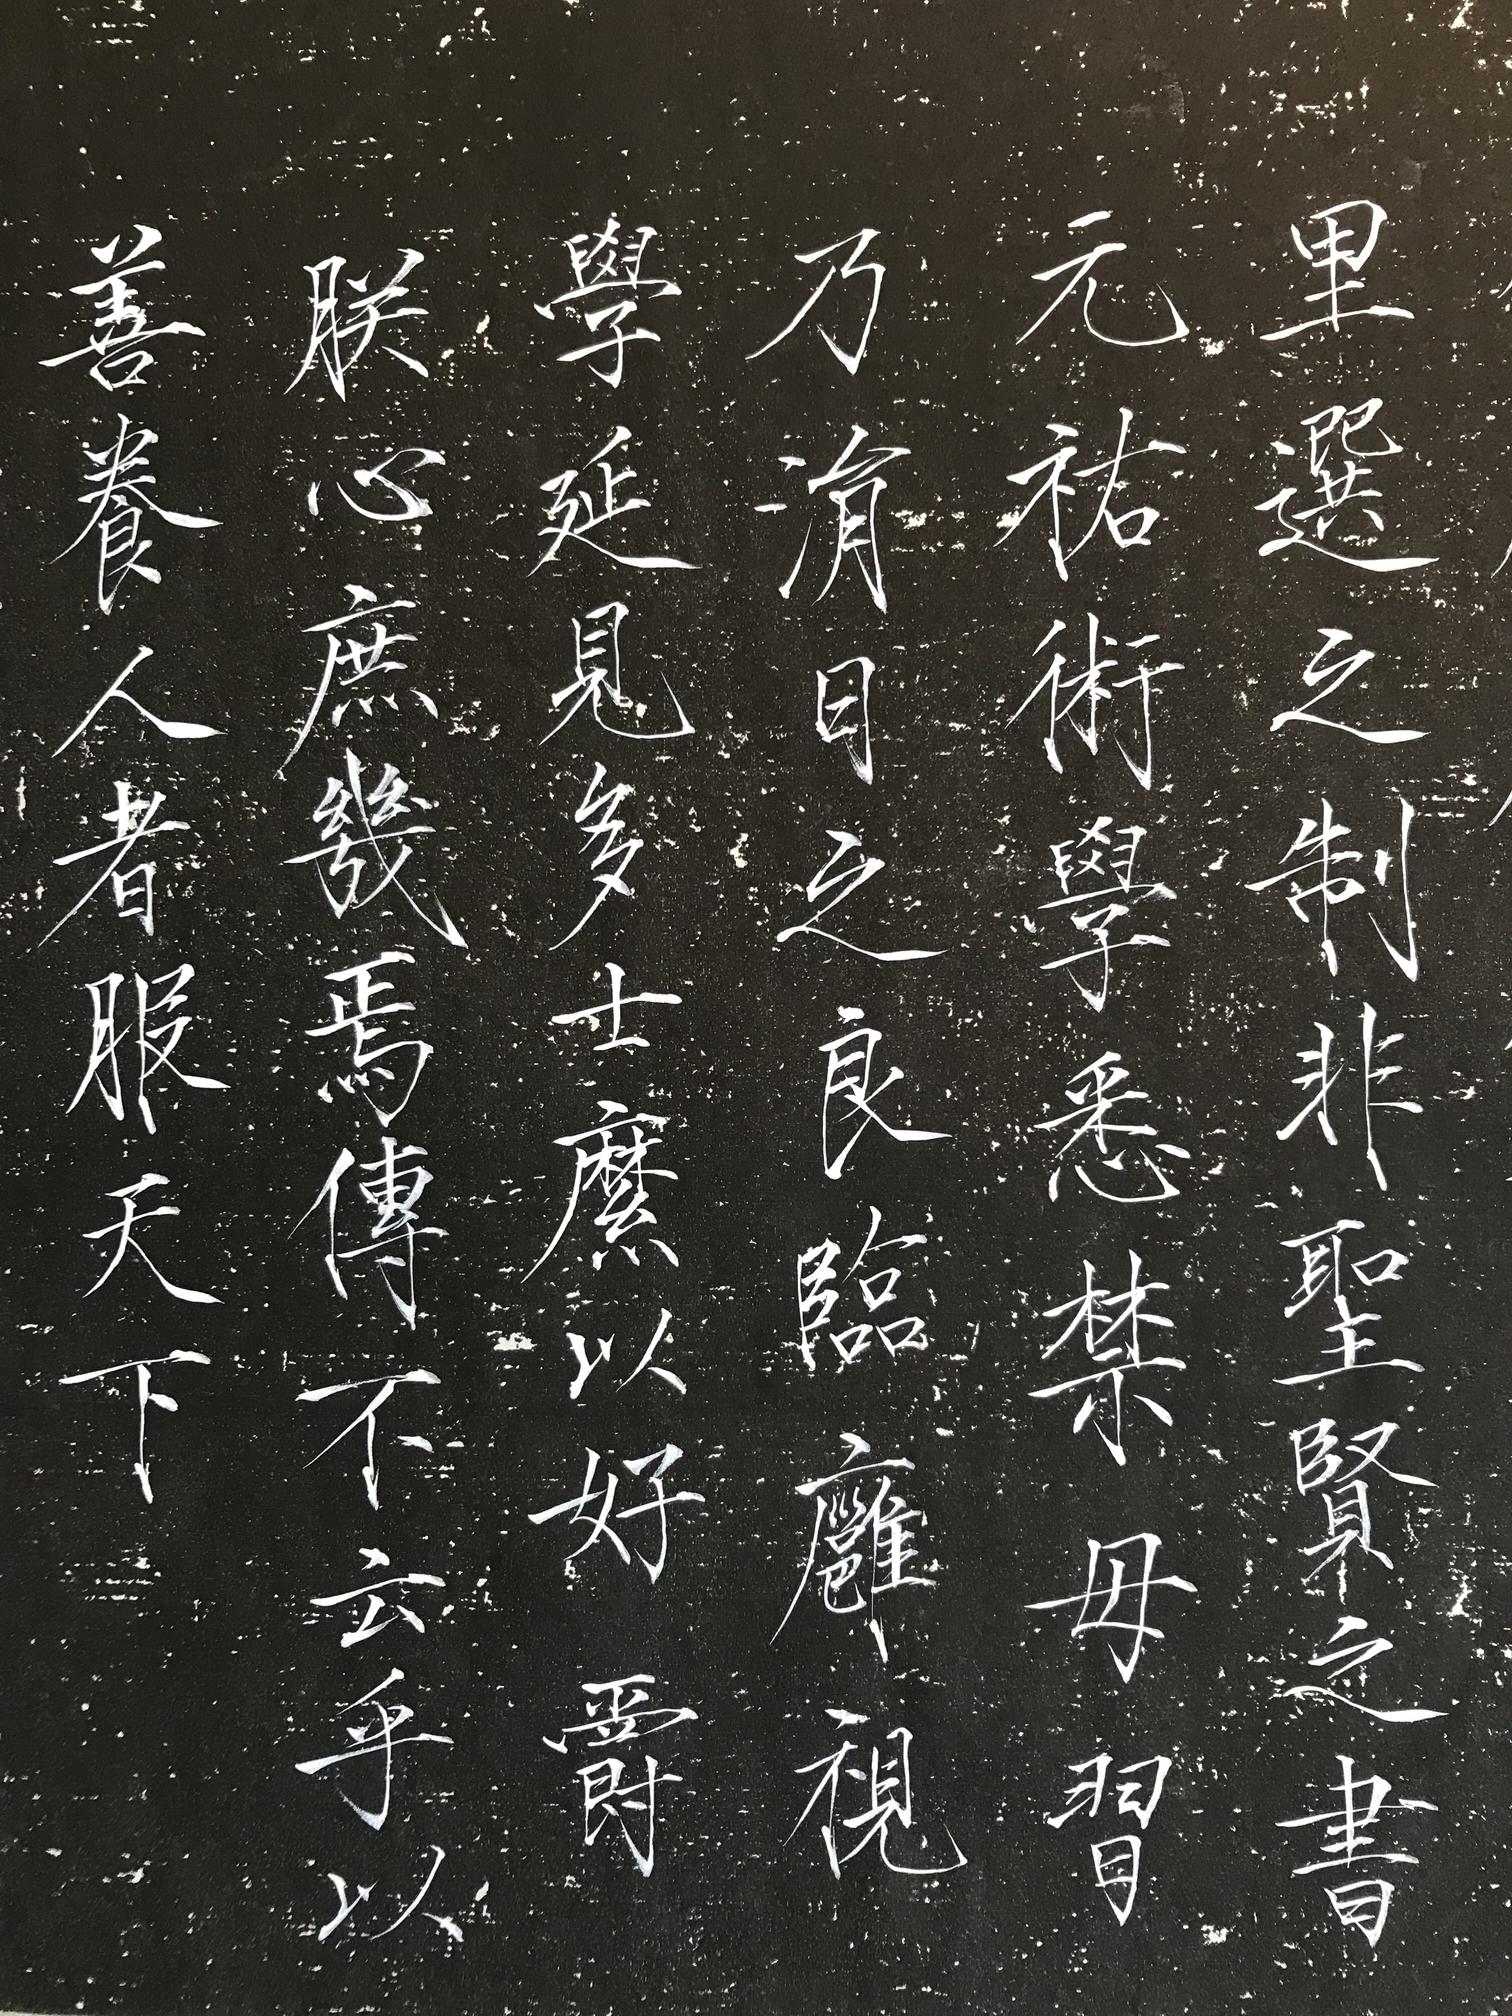 里選之制非聖賢之書
元祐術學悉禁毋習
乃涓日之良臨廱視
學延見多士縻以好爵
朕心庶幾焉傳不云乎以
善養人者服天下